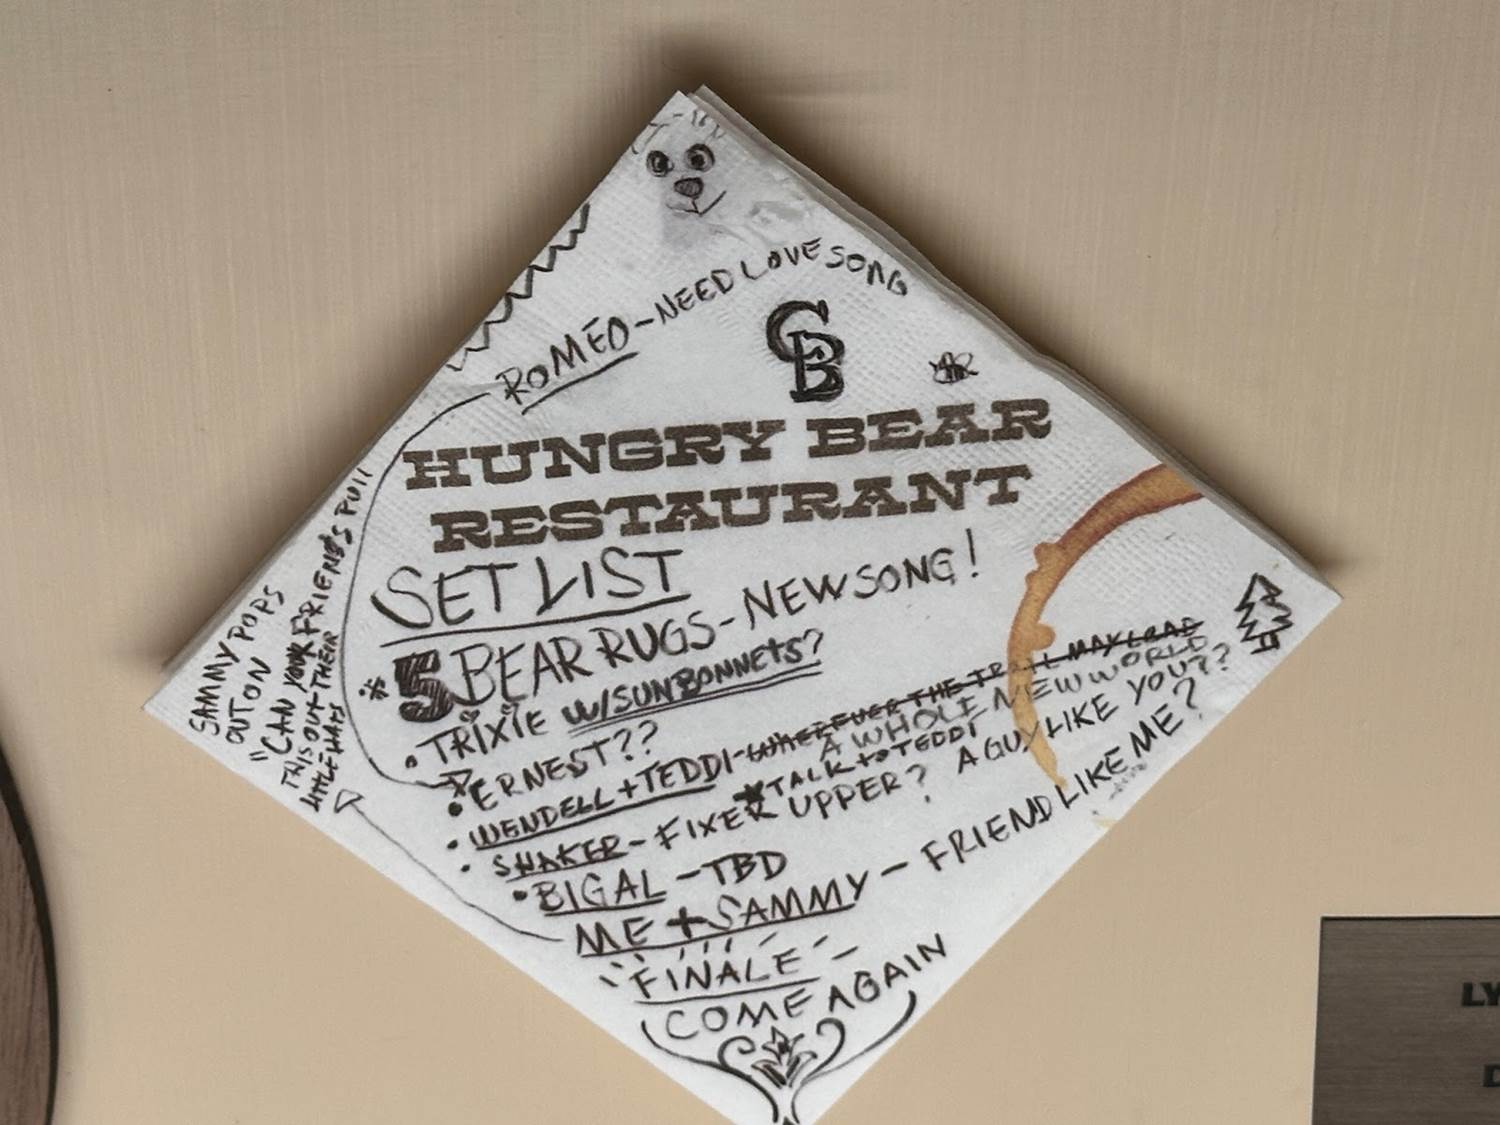 ROMEO - NEED LOVE SONG
CB
HUNGRY BEAR
RESTAURANT
SET LIST
* 5 BEAR RUGS - NEW SONG!
• TRIXIE W/SUNBONNETS?
• ERNEST??
• WENDELL + TEDDI - WHEREVER THE TRAIL MAY LEAD
A WHOLE NEW WORLD
* TALK to TEDDI
• SHAKER - FIXER UPPER? A GUY LIKE YOU??
• BIG AL - TBD
ME + SAMMY - FRIEND LIKE ME?
"FINALE"
COME AGAIN
SAMMY POPS
OUT ON
"CAN YOUR FRIENDS PULL
THIS OUT THEIR
LITTLE HAT"
LY
D